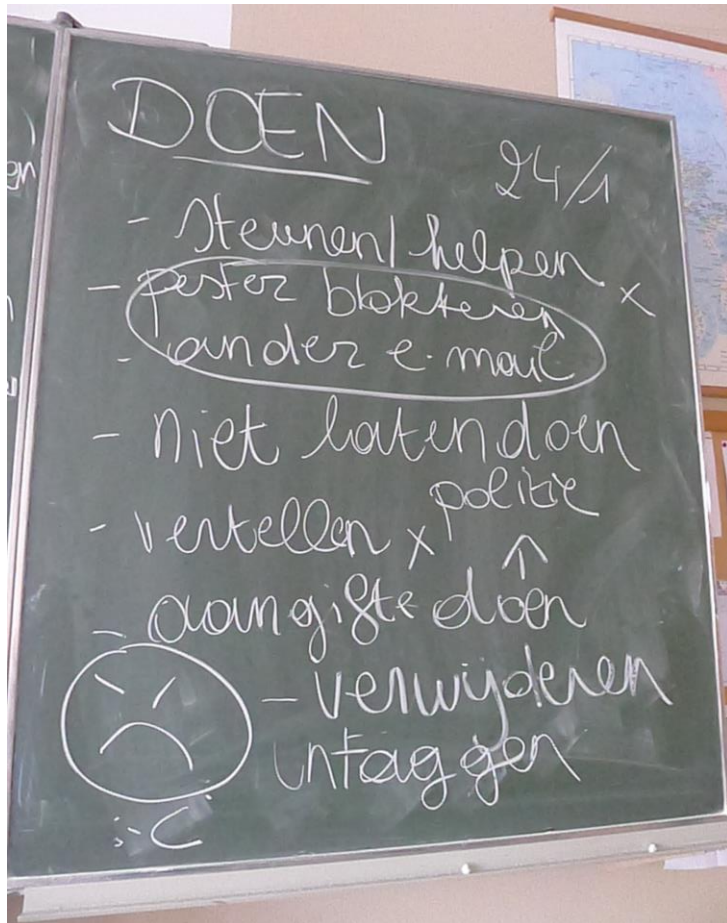 DOEN
24/1
- steunen/helpen
- pester blokkeren x
- ander e-mail
- niet laten doen
politie
- vertellen x ↑
- aangifte doen
- verwijderen
untaggen
:-(
en